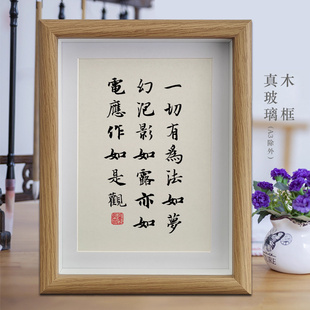 一切有為法如夢
幻泡影如露亦如
電應作如是觀
木框
真玻璃(A3除外)